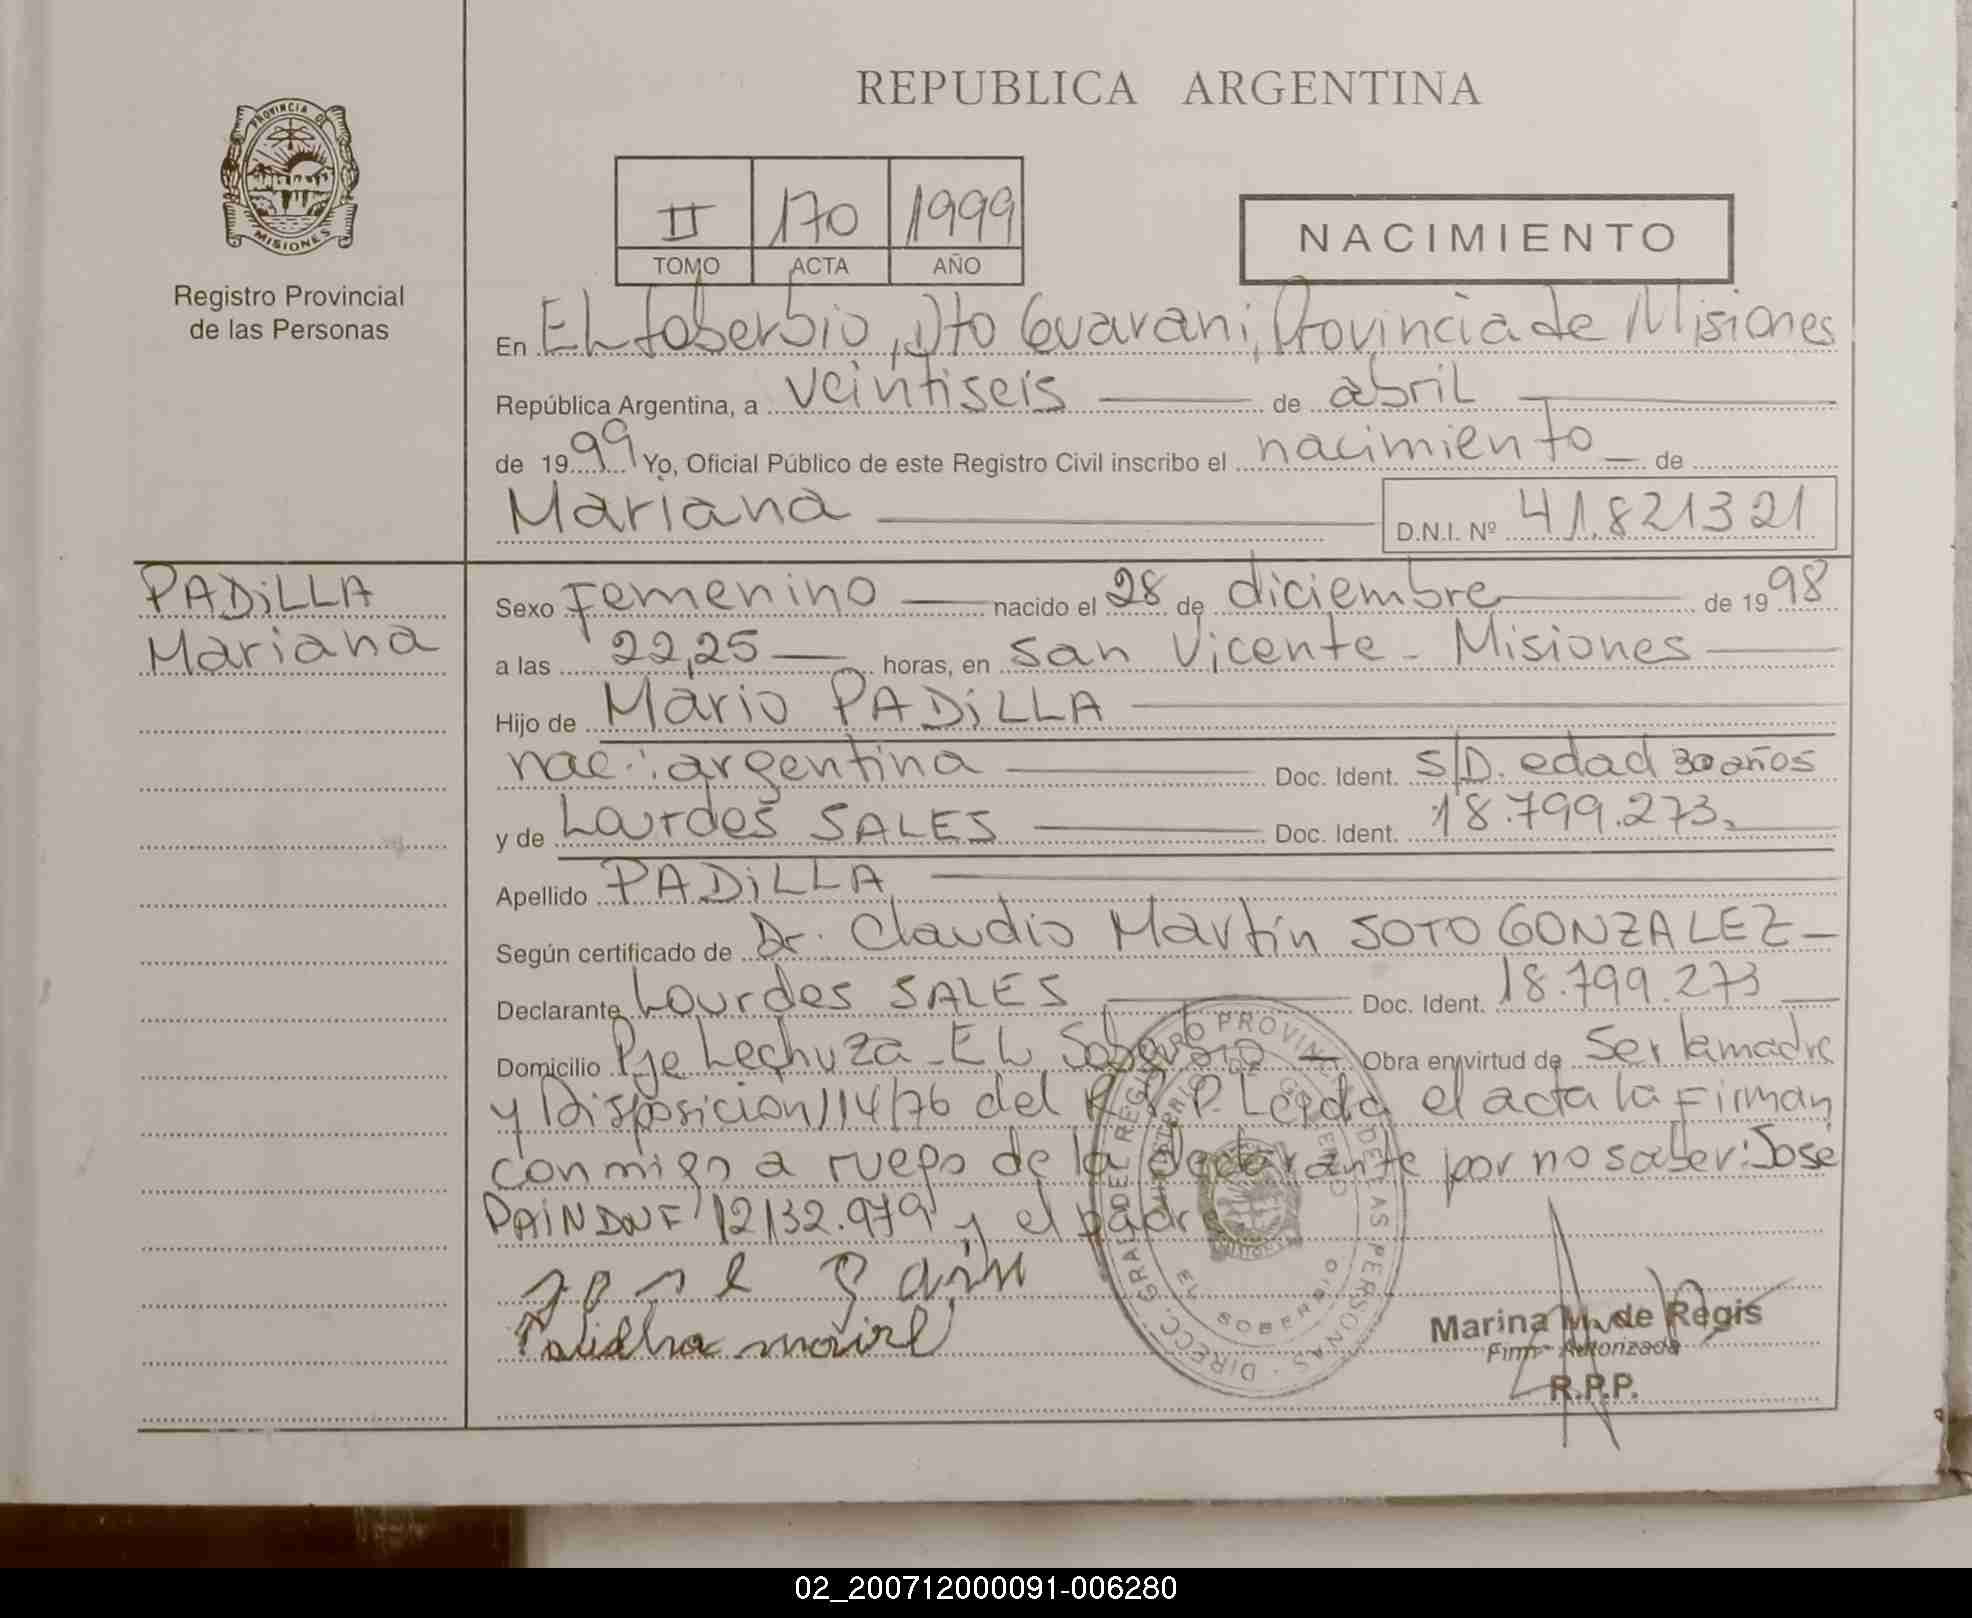 REPUBLICA ARGENTINA
PROVINCIA DE
MISIONES
Registro Provincial
de las Personas
II 170 1999
TOMO ACTA AÑO
NACIMIENTO
En EL Soberbio, Dto Guarani, Provincia de Misiones
República Argentina, a veintiseis de abril
de 1999 Yo, Oficial Público de este Registro Civil inscribo el nacimiento de
Mariana D.N.I. Nº 41.821321
PADiLLA
Mariana
Sexo Femenino nacido el 28 de diciembre de 1998
a las 22,25 horas, en San Vicente - Misiones
Hijo de Mario PADiLLA
nac: argentina Doc. Ident. S/D. edad 30 años
y de Lourdes SALES Doc. Ident. 18.799.273
Apellido PADiLLA
Según certificado de Dr. Claudio Martín SOTO GONZALEZ
Declarante Lourdes SALES Doc. Ident. 18.799.273
Domicilio Pje Lechuza - EL Soberbio Obra en virtud de Ser la madre
y Disposición 114/76 del R.P.P. Leida el acta la Firman
conmigo a ruego de la declarante por no saber: José
PAiN DNI 12132.979 y el padre
jose Pain
Padilha
DIRECC. GRAL DEL REGISTRO PROVINCIAL DE LAS PERSONAS
MINISTERIO DE GOBIERNO
EL SOBERBIO
MISIONES
Marina M. de Regis
Firma Autorizada
R.P.P.
02_200712000091-006280